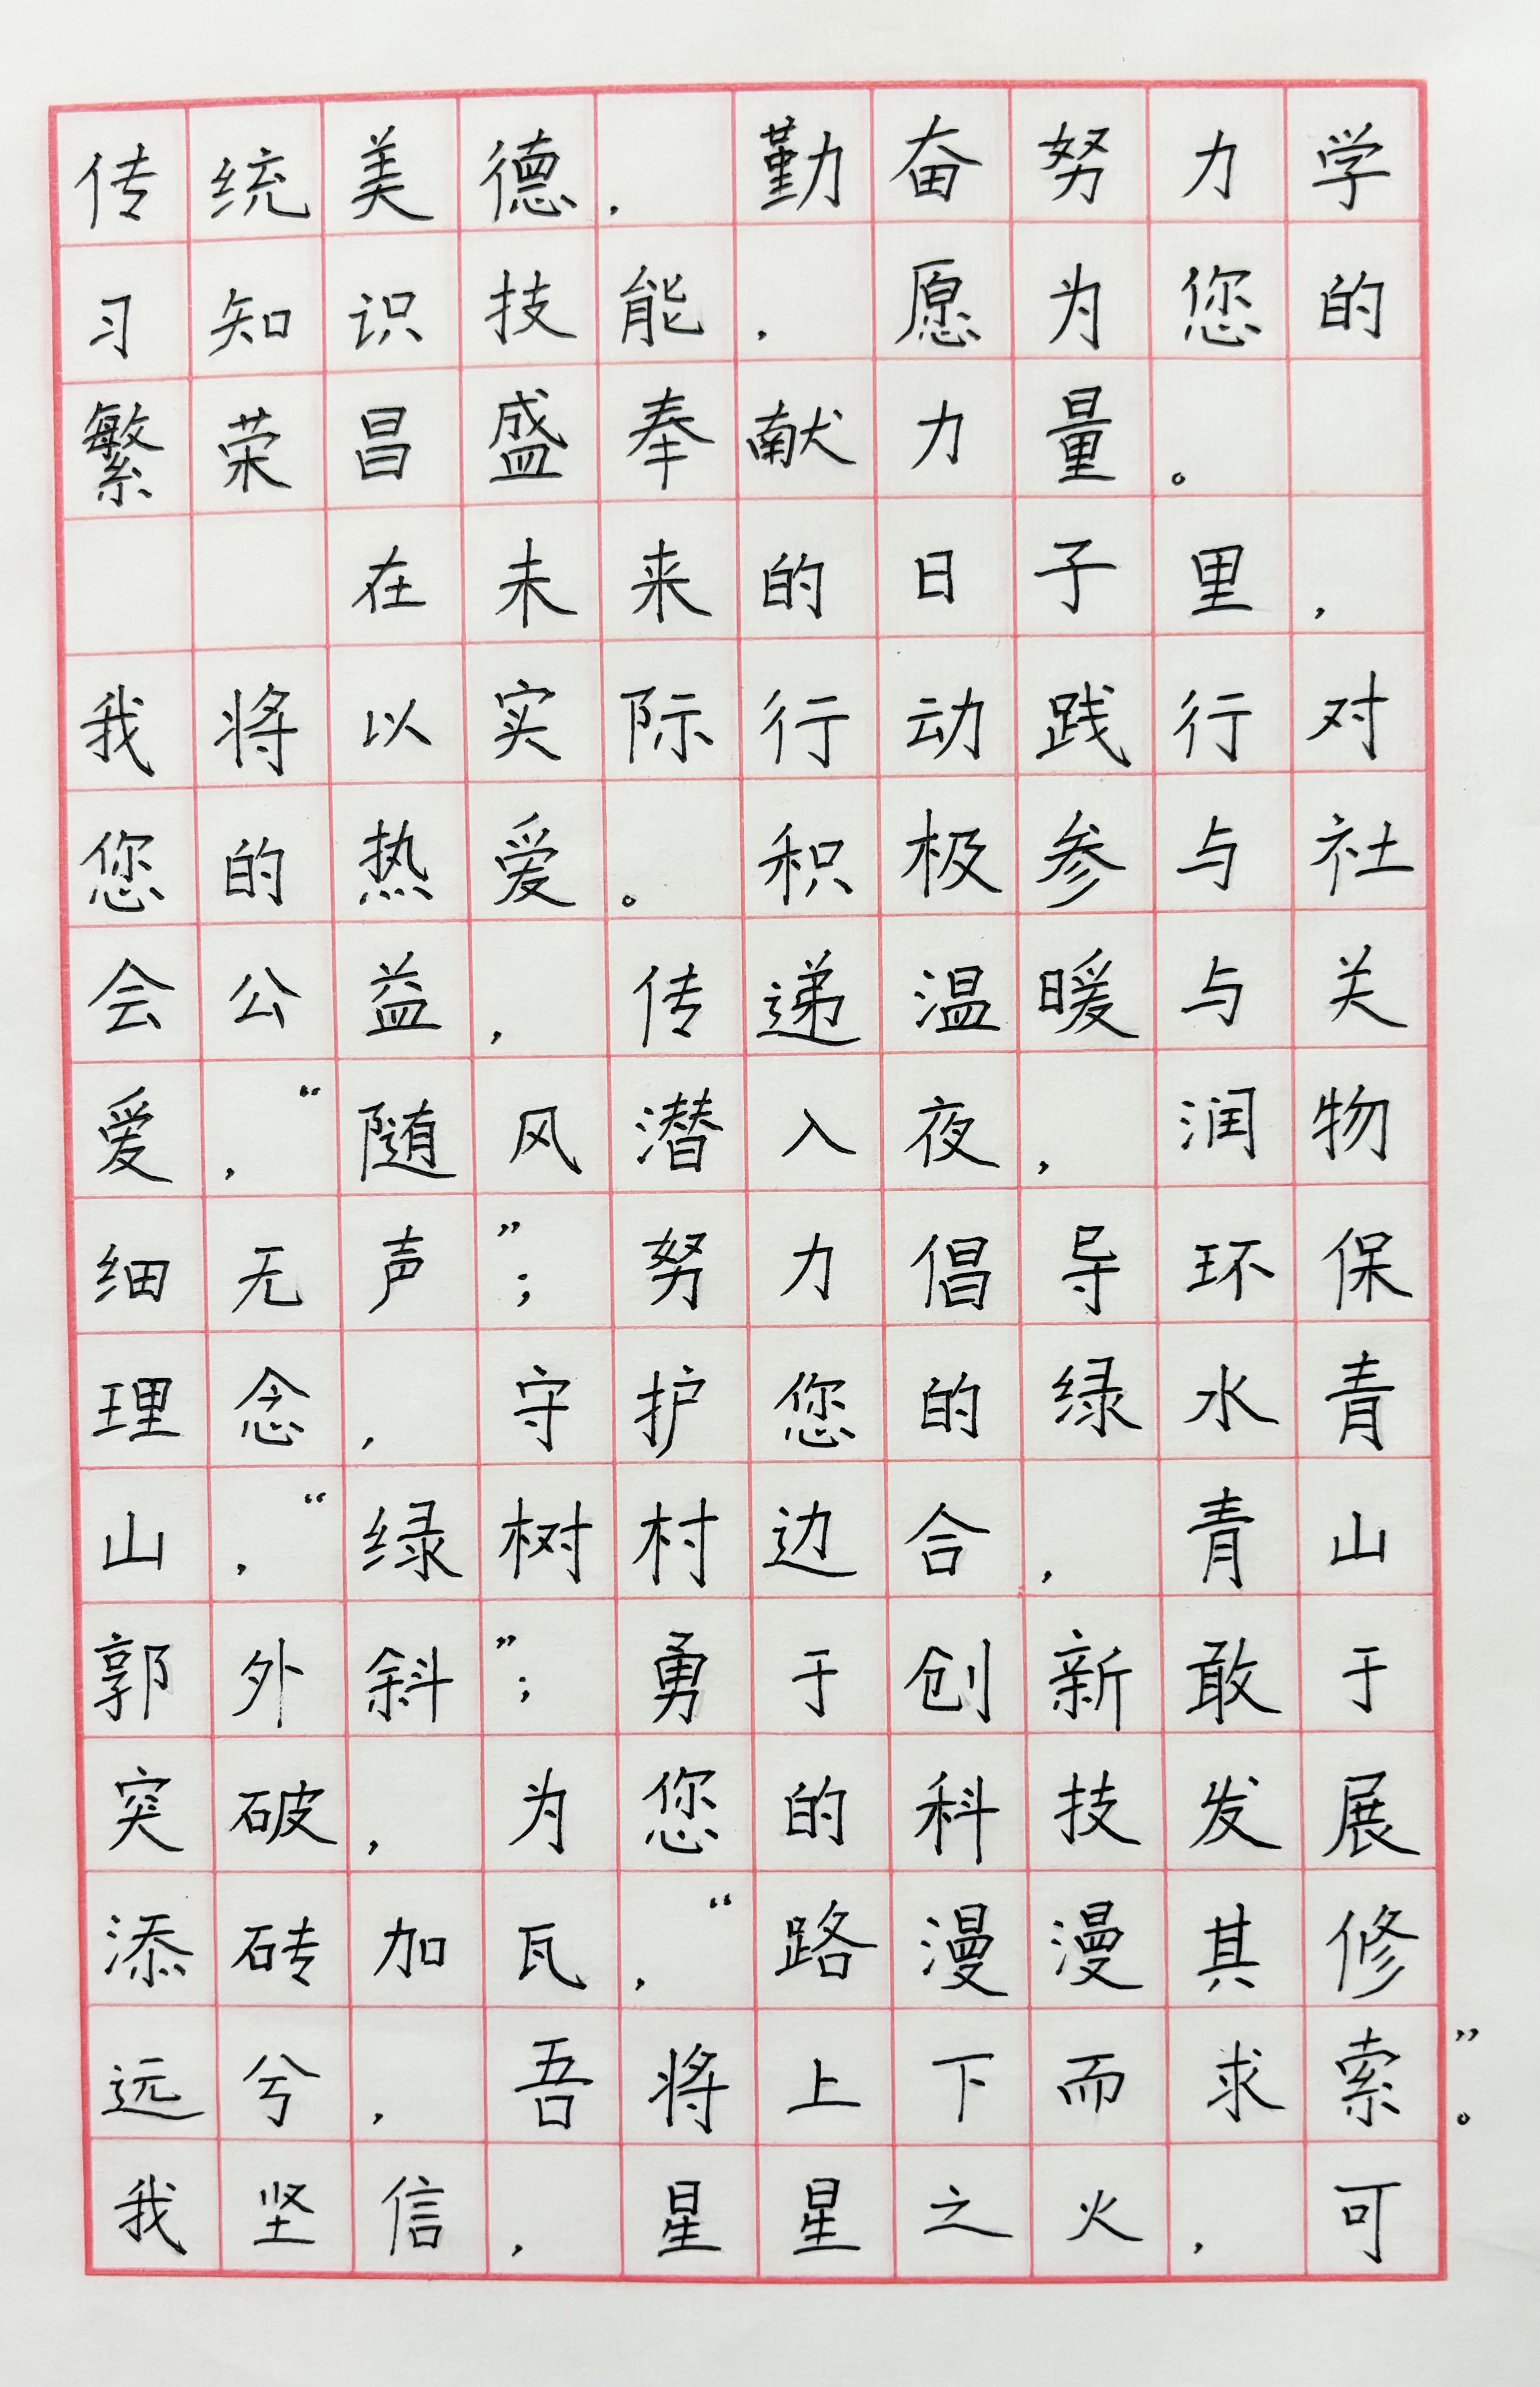 传统美德，勤奋努力学
习知识技能，愿为您的
繁荣昌盛奉献力量。
在未来的日子里，
我将以实际行动践行对
您的热爱。积极参与社
会公益，传递温暖与关
爱，“随风潜入夜，润物
细无声”；努力倡导环保
理念，守护您的绿水青
山，“绿树村边合，青山
郭外斜”；勇于创新敢于
突破，为您的科技发展
添砖加瓦，“路漫漫其修
远兮，吾将上下而求索”。
我坚信，星星之火，可